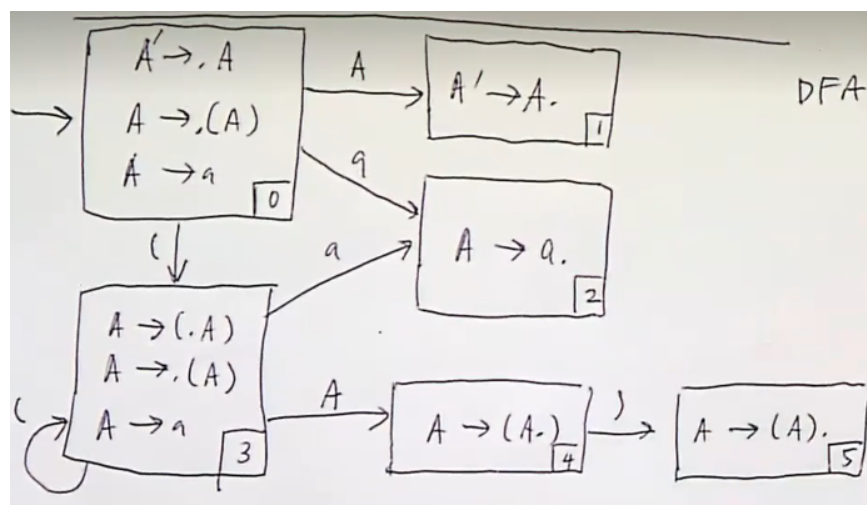 DFA
A' → . A
A → . (A)
A → a
0
A
A' → A.
1
a
A → a.
2
(
a
A → (. A)
A → . (A)
A → a
3
(
A
A → (A. )
4
)
A → (A).
5